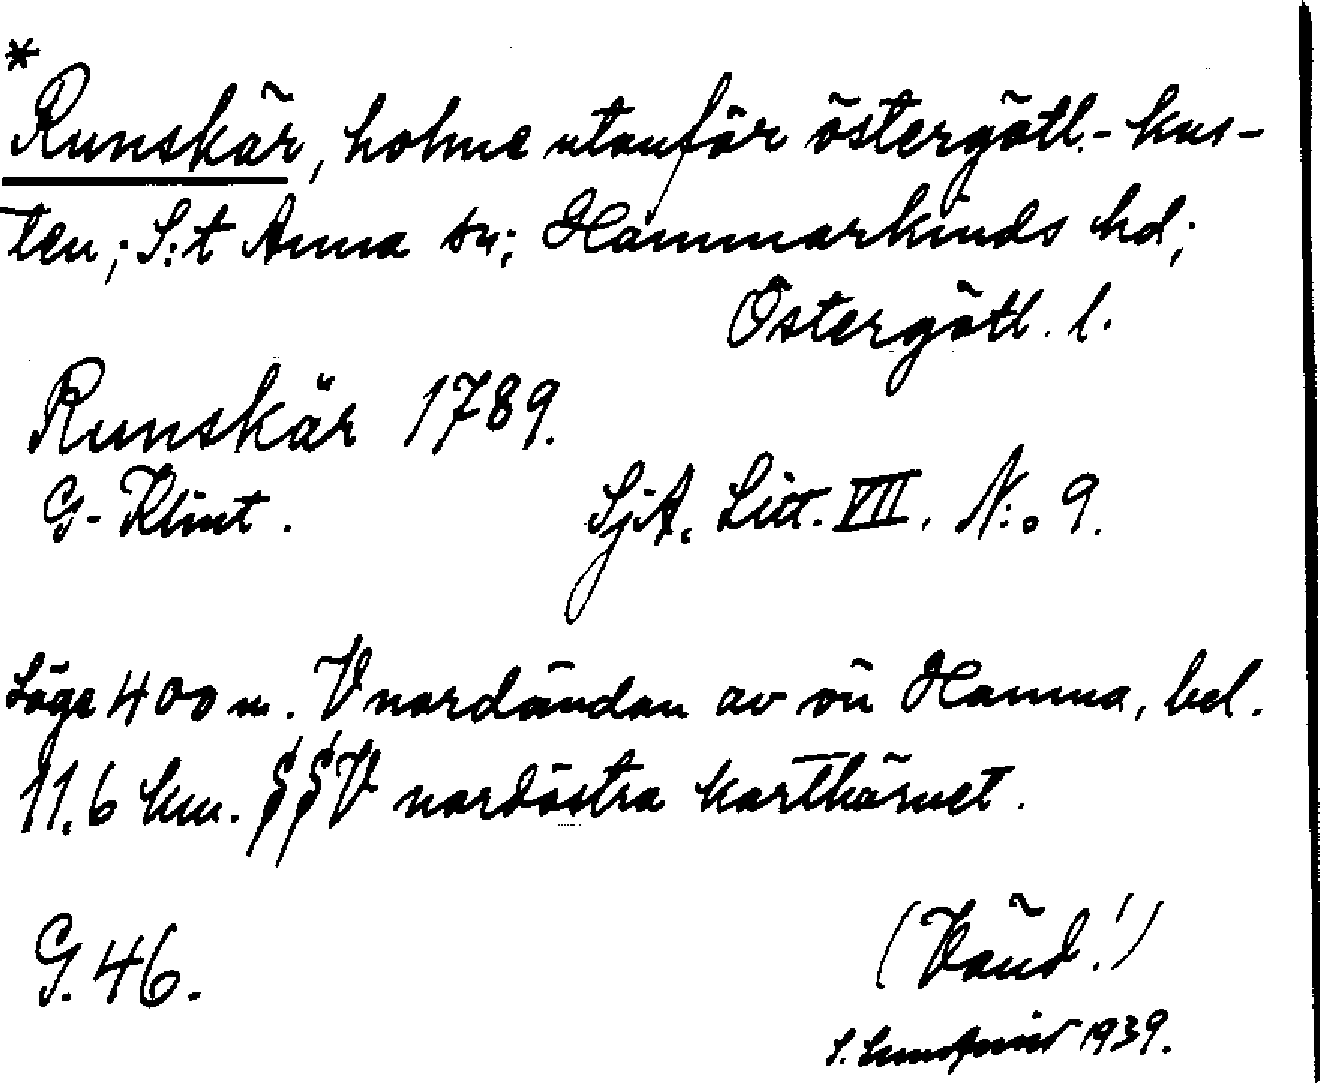 *
Runskär, holme utanför östergötl.- kus-
ten; S:t Anna sn; Hammarkinds hd;
Östergötl. l.
Runskär 1789.
G. Klint. SjA. Litt. VIII. N:o 9.
Läge 400 m. V nordändan av ön Hamna, bel.
11.6 km. SSV nordöstra karthörnet.
G. 46. (Vänd!)
S. Lundqvist 1939.